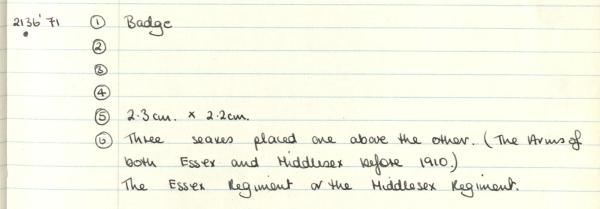 2136'71 ① Badge
②
③
④
⑤ 2.3cm. × 2.2cm.
⑥ Three seaxes placed one above the other. (The Arms of
both Essex and Middlesex before 1910)
The Essex Regiment or the Middlesex Regiment.